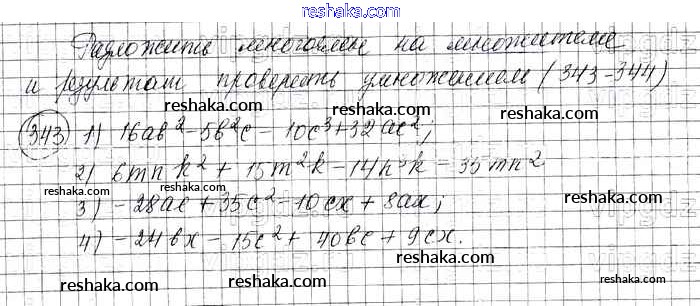 reshaka.com
Разложить многочлен на множители
и результат проверить умножением (343-344)
reshaka.com reshaka.com
343 1) 16ab² - 5b²c - 10c³ + 32ac²;
2) 6mnk² + 15m²k - 14n³k - 35mn²
reshaka.com reshaka.com
3) -28ac + 35c² - 10cx + 8ax;
reshaka.com
4) -24bx - 15c² + 40bc + 9cx.
reshaka.com reshaka.com
reshaka.com